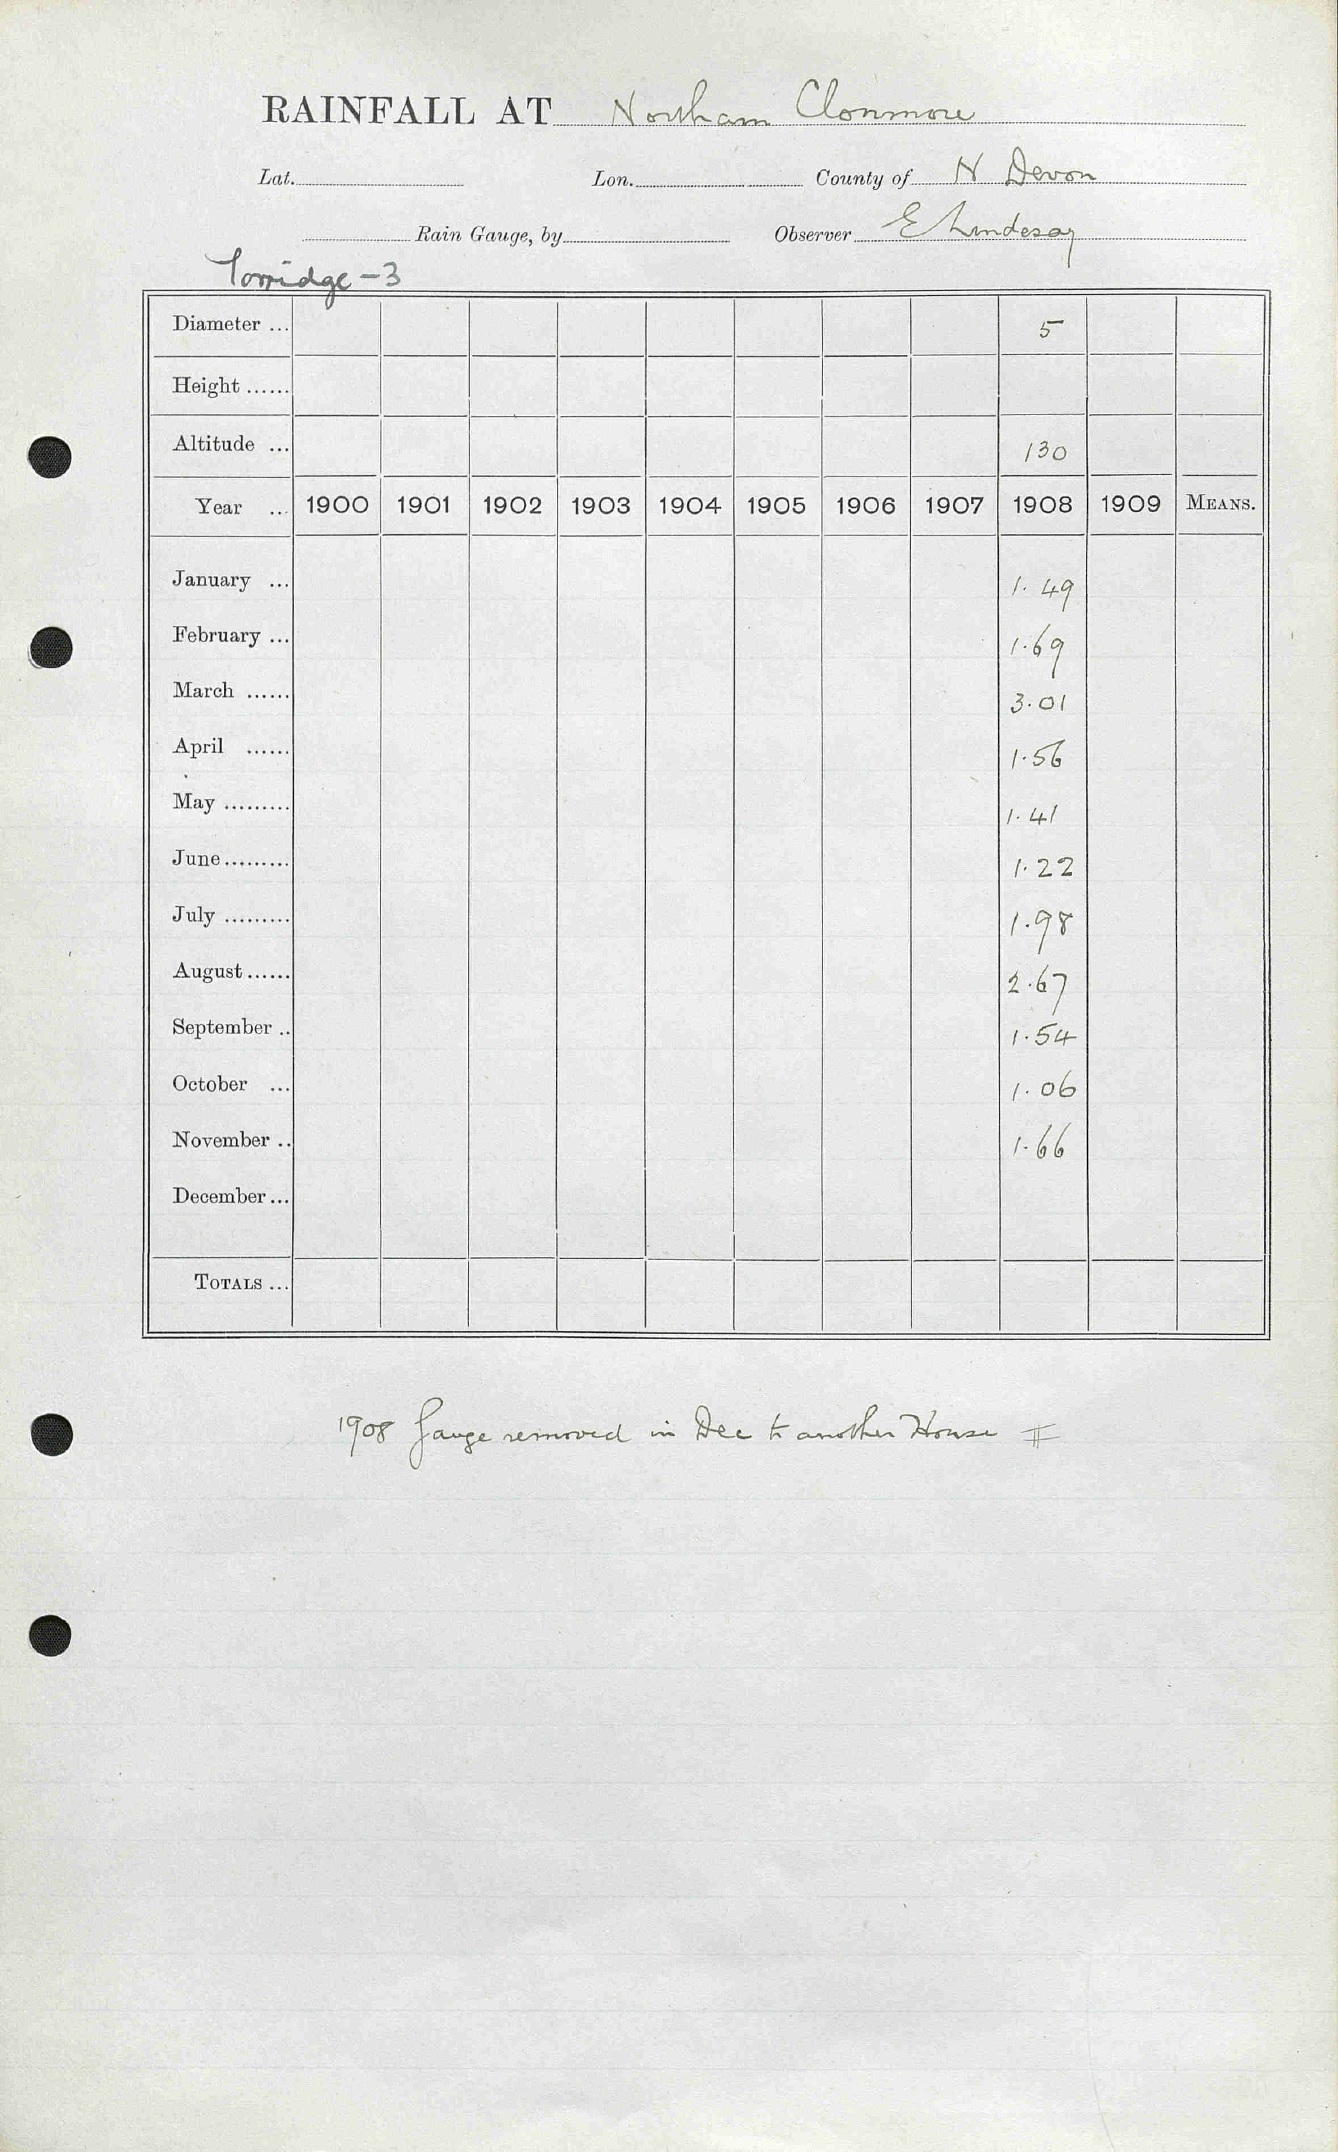 RAINFALL AT Northam Clonmore
Lat. Lon. County of N Devon
Rain Gauge, by Observer E Lindesay
Torridge - 3
Diameter ... 5
Height ......
Altitude ... 130
Year ... 1900 1901 1902 1903 1904 1905 1906 1907 1908 1909 MEANS.
January ... 1.49
February ... 1.69
March ...... 3.01
April ...... 1.56
May ......... 1.41
June ......... 1.22
July ......... 1.98
August ...... 2.67
September .. 1.54
October ... 1.06
November .. 1.66
December ...
TOTALS ...
1908 Gauge removed in Dec to another House #